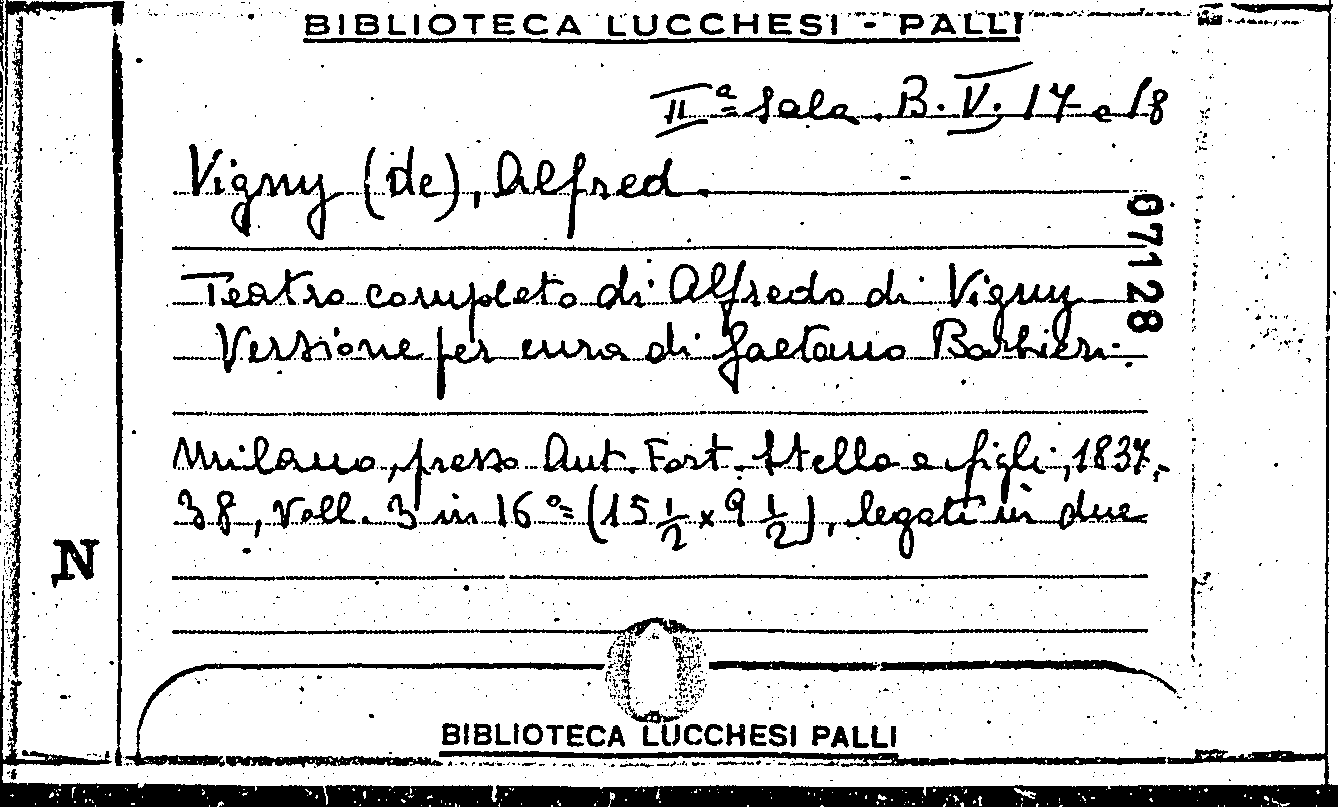 BIBLIOTECA LUCCHESI - PALLI
IIª Sala. B. V. 17 e 18
Vigny (de), Alfred.
07128
Teatro completo di Alfredo di Vigny
Versione per cura di Gaetano Barbieri.
Milano, presso Ant. Fort. Stella e figli, 1837,-
38, Voll. 3 in 16º (15 1/2 x 9 1/2), legati in due
N
BIBLIOTECA LUCCHESI PALLI